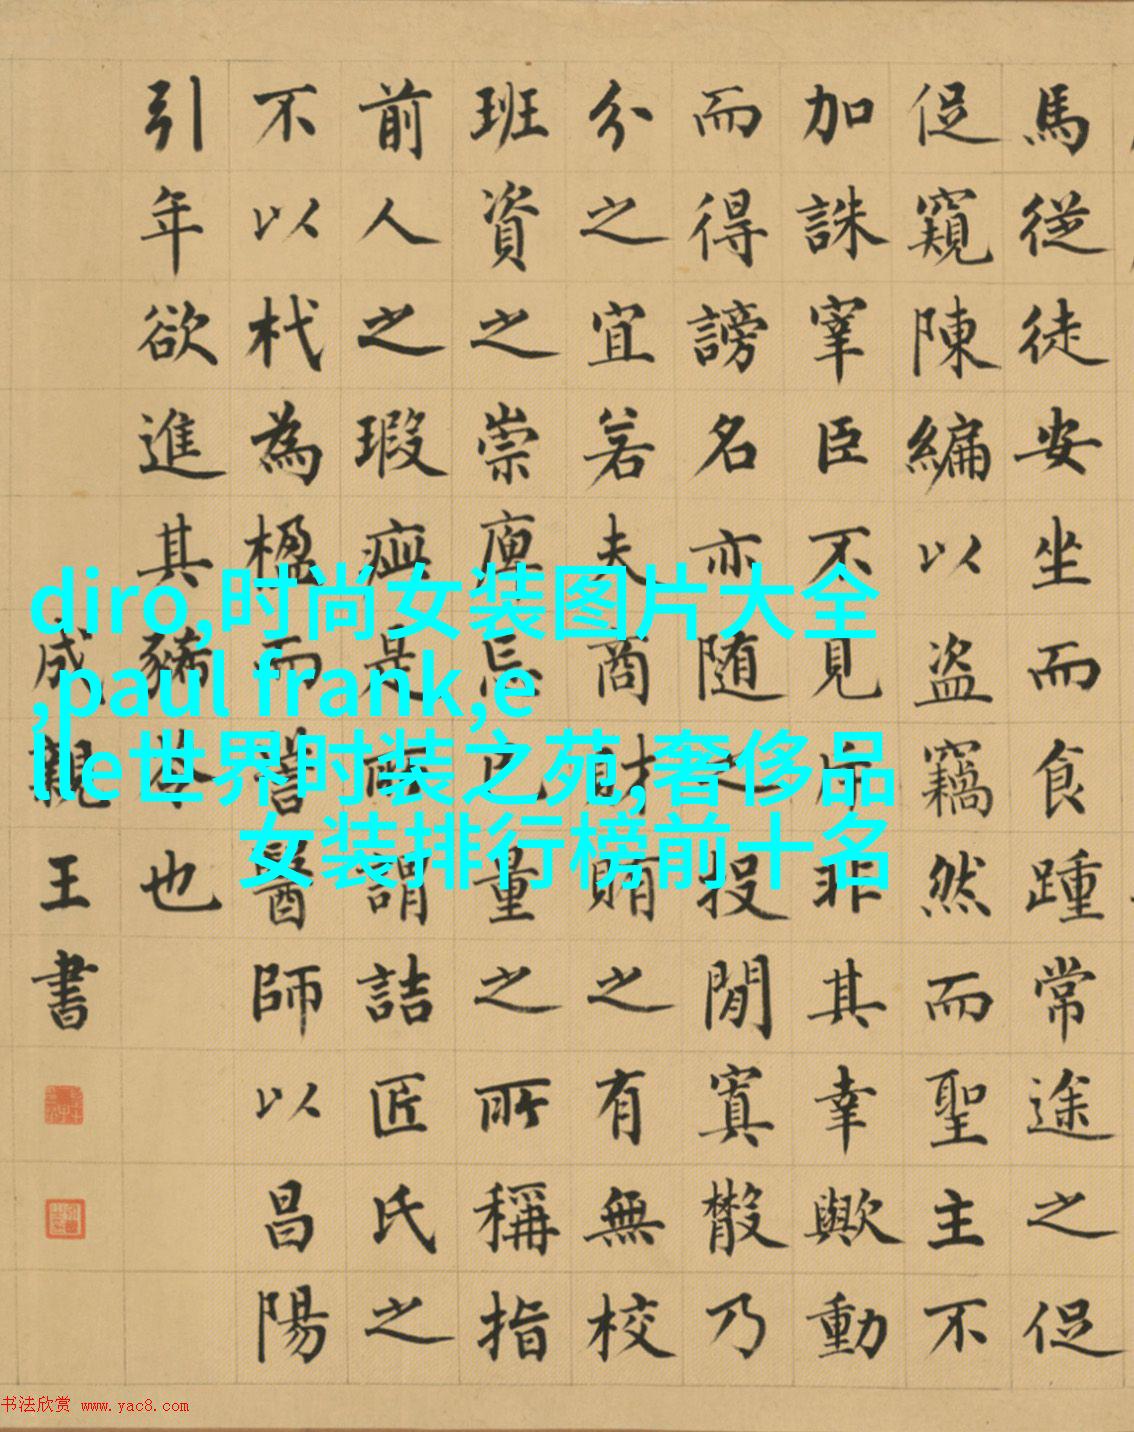 馬從徒安坐而食踵常途之促
促窺陳編以盜竊然而聖主不
加誅宰臣不見斥非其幸歟動
而得謗名亦随之投閒寘散乃
分之宜若夫商財賄之有無校
班資之崇庳忘己量之所稱指
前人之瑕疵是所謂詰匠氏之
不以杙為楹而訾醫師以昌陽
引年欲進其豨苓也
成親王書
diro,时尚女装图片大全
,paul frank,e
lle世界时装之苑,奢侈品
女装排行榜前十名
书法欣赏 www.yac8.com